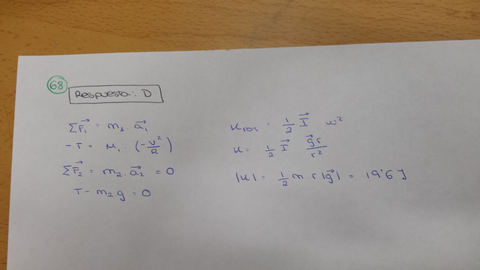 68
Respuesta: D
ΣF⃗₁ = m₁ · a⃗₁
-T = M₁ (-v²/2)
ΣF⃗₂ = m₂ · a⃗₂ = 0
T - m₂ g = 0
u_rot = 1/2 I⃗ ω²
u = 1/2 I⃗ g⃗r/r²
|u| = 1/2 m r |g⃗| = 19'6 J